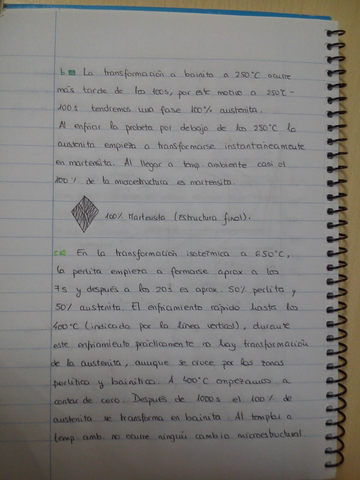 b. La transformación a bainita a 250°C ocurre
más tarde de los 100s, por este motivo a 250°C -
100s tendremos una fase 100% austenita.
Al enfriar la probeta por debajo de los 250°C la
austenita empieza a transformarse instantáneamente
en martensita. Al llegar a temp. ambiente casi el
100% de la microestructura es martensita.
100% Martensita (estructura final).
En la transformación isotérmica a 650°C,
la perlita empieza a formarse aprox a los
7s y después a los 20s es aprox. 50% perlita y
50% austenita. El enfriamiento rápido hasta los
400°C (indicado por la línea vertical), durante
este enfriamiento prácticamente no hay transformación
de la austenita, aunque se cruce por las zonas
perlítica y bainítica. A 400°C empezamos a
contar de cero. Después de 1000s el 100% de
austenita se transforma en bainita. Al templar a
temp. amb. no ocurre ningún cambio microestructural.